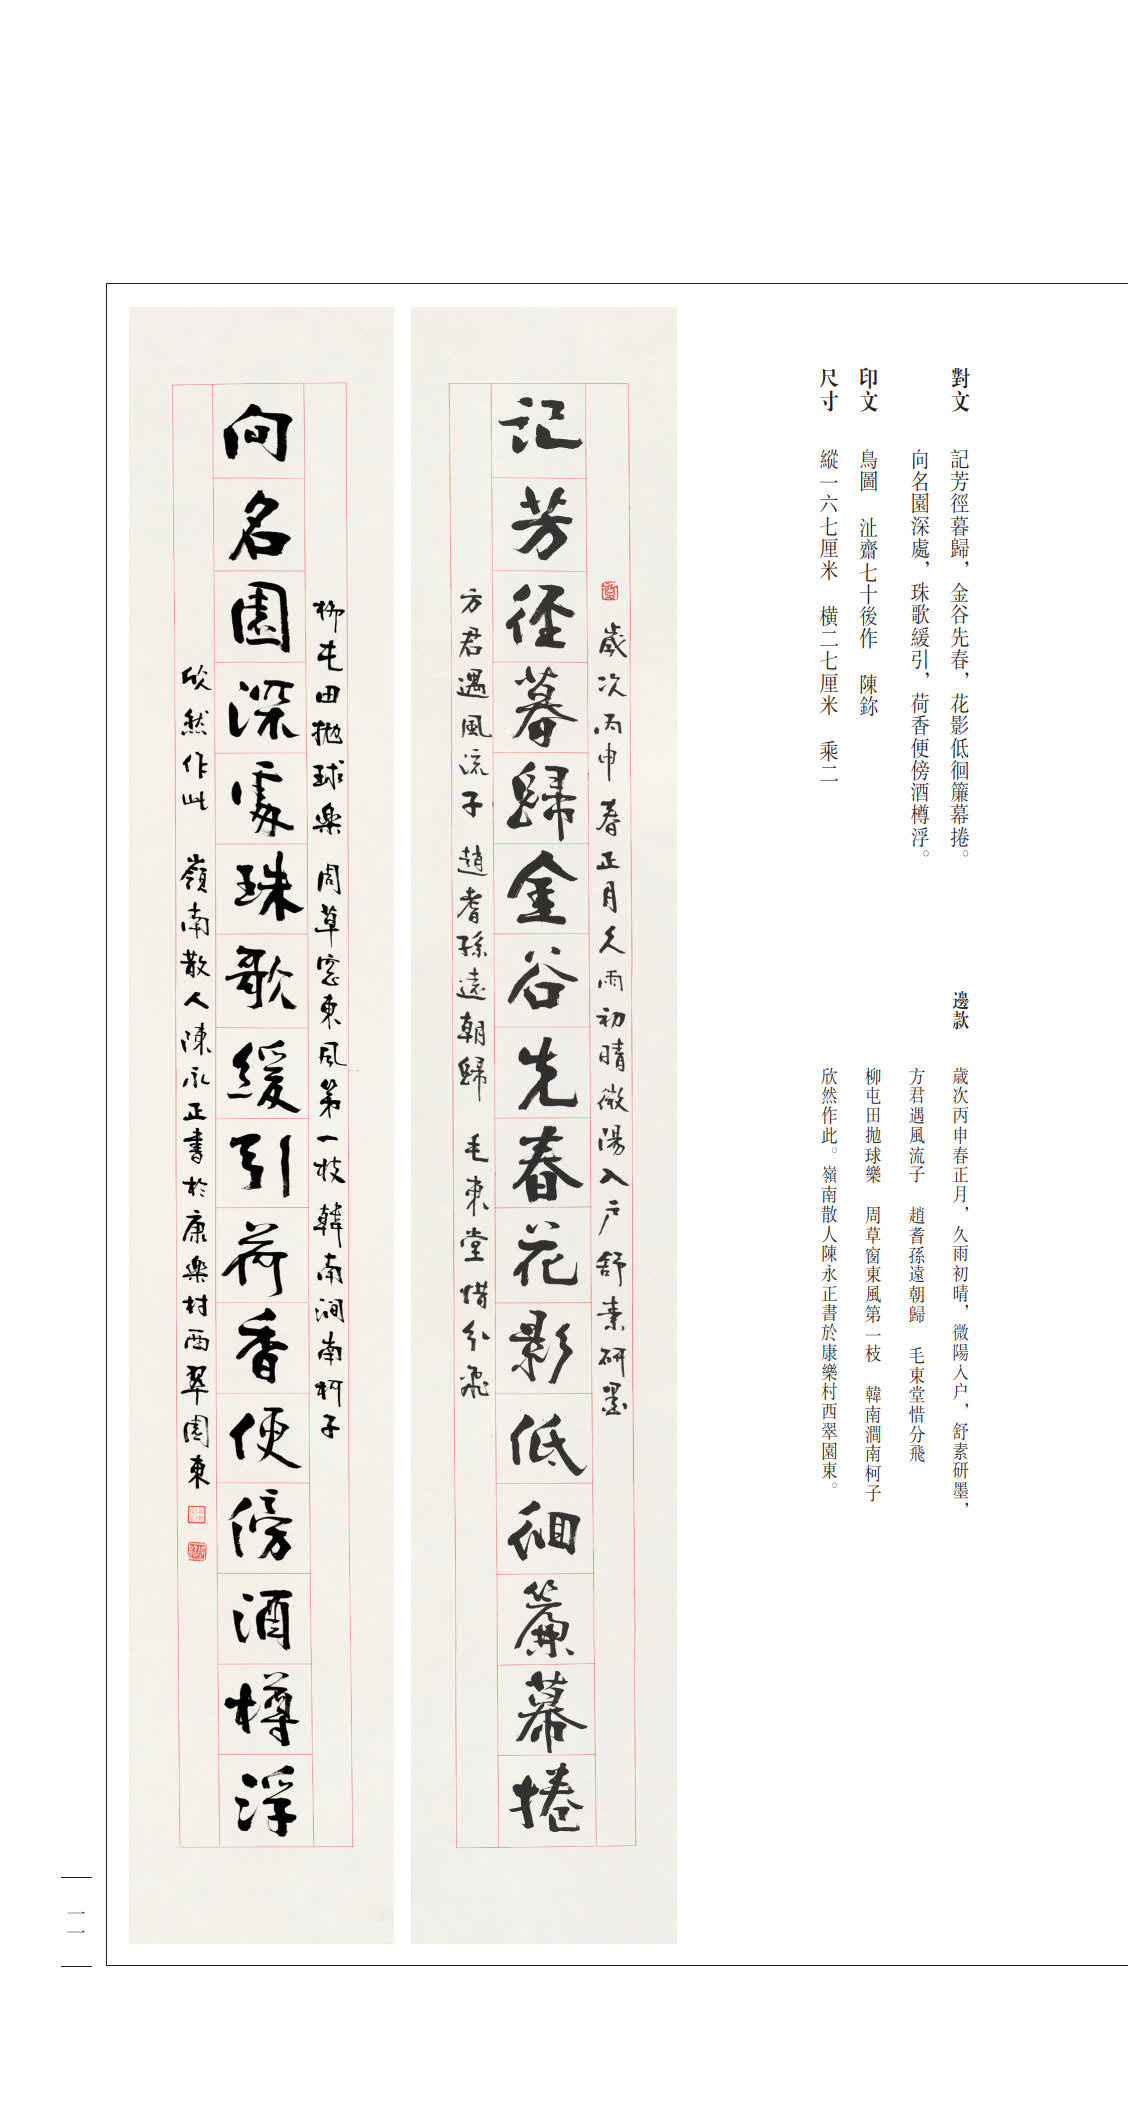 對文
記芳徑暮歸，金谷先春，花影低徊簾幕捲。
向名園深處，珠歌緩引，荷香便傍酒樽浮。
印文
鳥圖 沚齋七十後作 陳鉨
尺寸
縱一六七厘米 橫二七厘米 乘二
邊款
歲次丙申春正月，久雨初晴，微陽入户，舒素研墨，
方君遇風流子 趙耆孫遠朝歸 毛東堂惜分飛
柳屯田拋球樂 周草窗東風第一枝 韓南澗南柯子
欣然作此。嶺南散人陳永正書於康樂村西翠園東。
歲次丙申春正月久雨初晴微陽入户舒素研墨
記芳徑暮歸金谷先春花影低徊簾幕捲
方君遇風流子 趙耆孫遠朝歸 毛東堂惜分飛
柳屯田拋球樂 周草窓東風第一枝 韓南澗南柯子
向名園深處珠歌緩引荷香便傍酒樽浮
欣然作此 嶺南散人陳永正書於康樂村西翠園東
一一